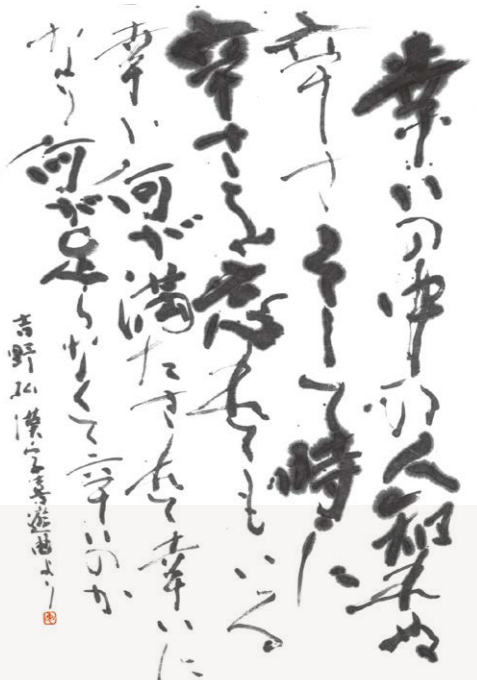 幸いの中の人知れぬ
辛さそして時に
辛さを忘れてもいる
幸い何が満たされて幸いに
なり何が足らなくて辛いのか
吉野弘漢字喜遊曲より